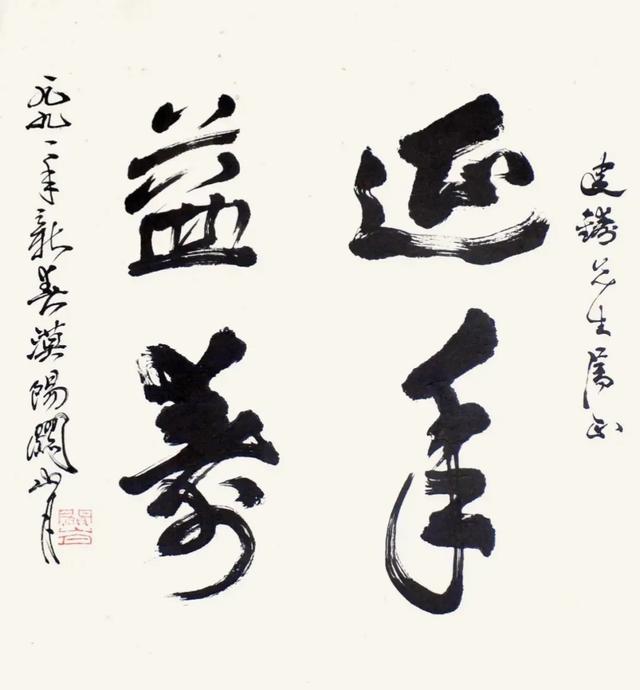 建鑄先生屬正
延年
益壽
一九九一年新春漠陽關山月